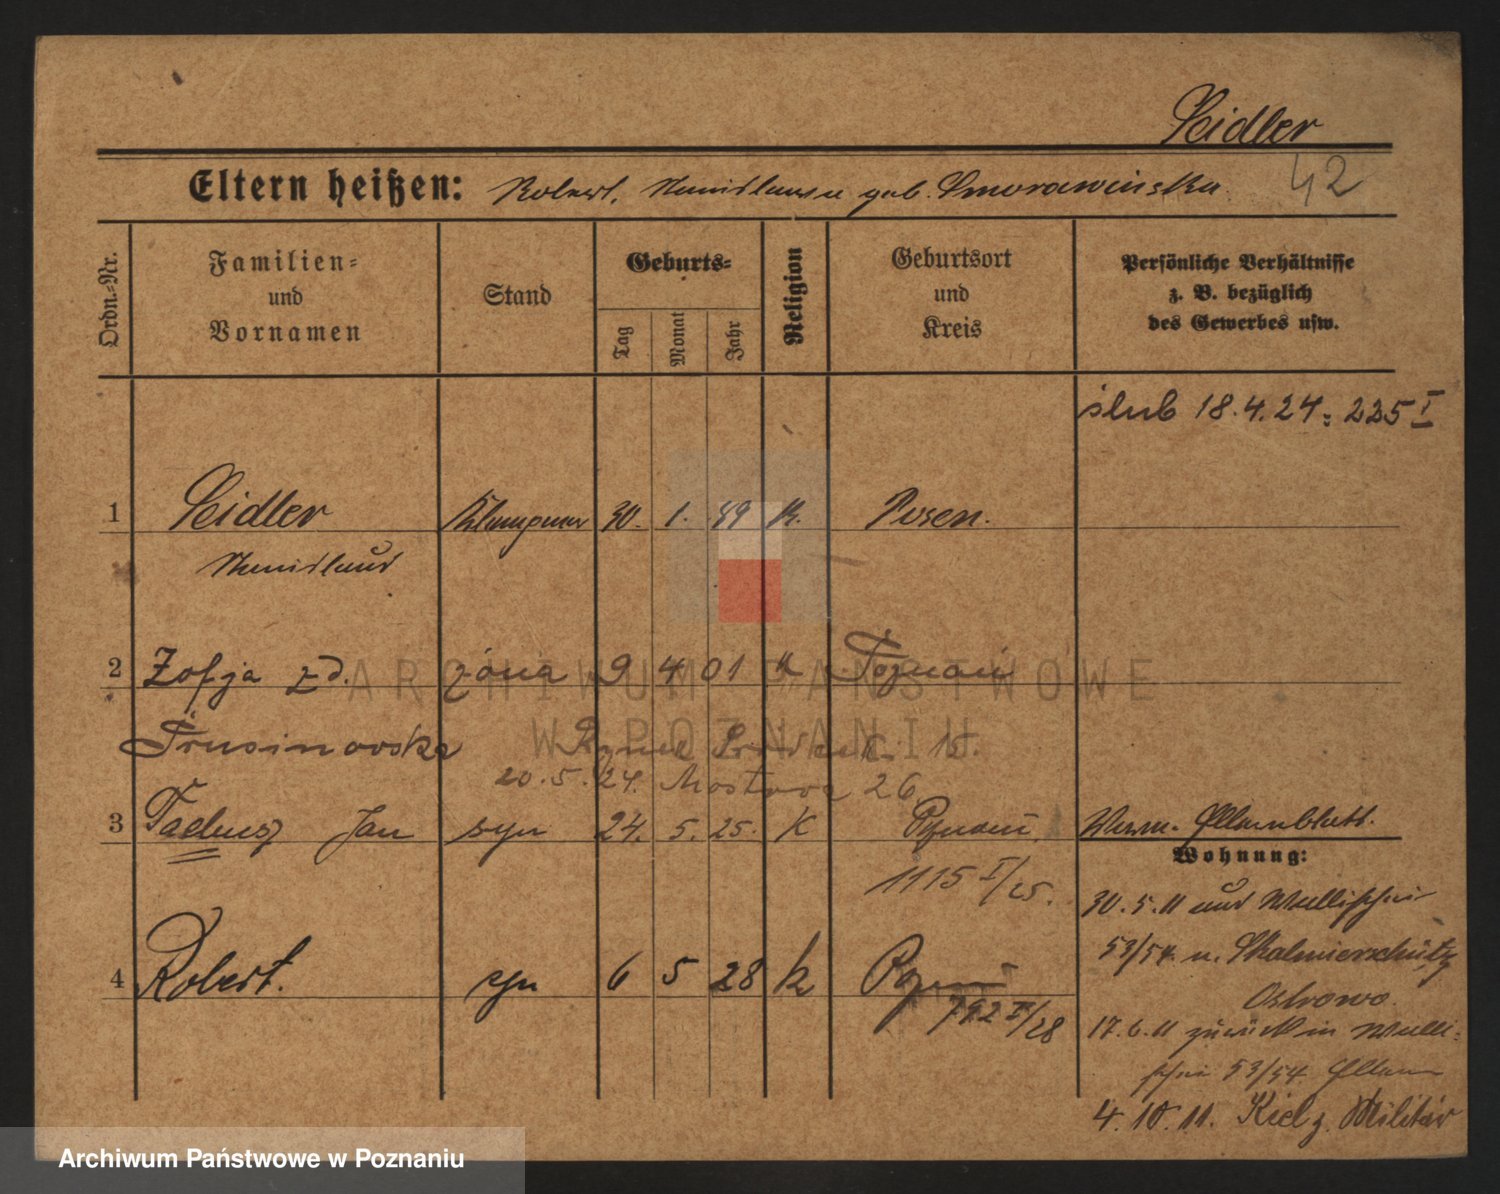 Seidler
Eltern heißen: Robert, Stanislawa geb. Smorawinska
42
Ordn.-Nr.
Familien-
und
Vornamen
Stand
Geburts-
Tag
Monat
Jahr
Religion
Geburtsort
und
Kreis
Persönliche Verhältnisse
z. B. bezüglich
des Gewerbes usw.
ślub 18.4.24 = 225 I
1 Seidler Klempner 30. 1. 89 K. Posen.
Stanislaus
2 Zofja zd. żona 9 4 01 K Poznań
Trusinowska
20.5.24. Mostowa 26
3 Tadeusz Jan syn 24. 5. 25. K Poznań
Elternblatt.
1115 I/25.
Wohnung:
30.5.11 aus Wallischei
53/54. n. Skalmierschütz
4 Robert. syn 6 5 28 k Pozn
Ostrowo.
792 II/28
17.6.11 zurück in Walli-
schei 53/54 Eltern
4.10.11. Kiel z. Militär
ARCHIWUM PAŃSTWOWE
W POZNANIU
Archiwum Państwowe w Poznaniu